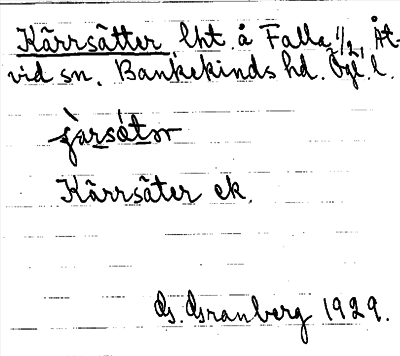 Kärrsätter, lht. å Falla 1/2, Åt-
vid sn. Bankekinds hd. Ögl. l.
Kärrsäter ek.
G. Granberg 1929.